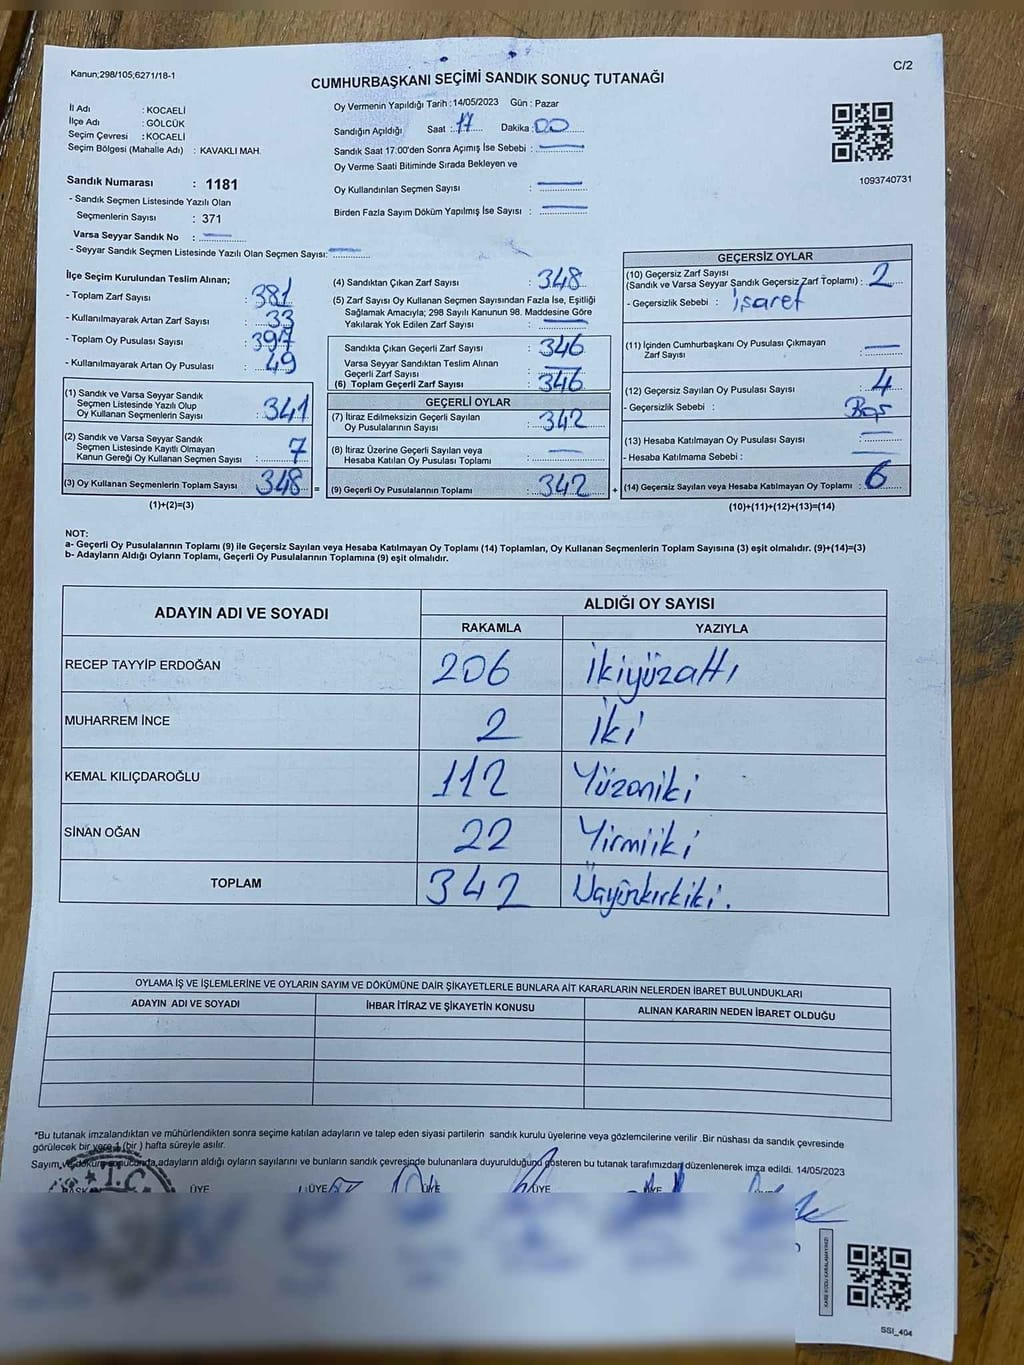 Kanun;298/105;6271/18-1
C/2
CUMHURBAŞKANI SEÇİMİ SANDIK SONUÇ TUTANAĞI
İl Adı : KOCAELİ
İlçe Adı : GÖLCÜK
Seçim Çevresi : KOCAELİ
Seçim Bölgesi (Mahalle Adı) : KAVAKLI MAH.
Sandık Numarası : 1181
- Sandık Seçmen Listesinde Yazılı Olan
Seçmenlerin Sayısı : 371
Varsa Seyyar Sandık No : —
- Seyyar Sandık Seçmen Listesinde Yazılı Olan Seçmen Sayısı: —
Oy Vermenin Yapıldığı Tarih : 14/05/2023 Gün : Pazar
Sandığın Açıldığı Saat : 17 Dakika : 00
Sandık Saat 17.00'den Sonra Açımış İse Sebebi : —
Oy Verme Saati Bitiminde Sırada Bekleyen ve
Oy Kullandırılan Seçmen Sayısı : —
Birden Fazla Sayım Döküm Yapılmış İse Sayısı : —
1093740731
İlçe Seçim Kurulundan Teslim Alınan;
- Toplam Zarf Sayısı : 381
- Kullanılmayarak Artan Zarf Sayısı : 33
- Toplam Oy Pusulası Sayısı : 397
- Kullanılmayarak Artan Oy Pusulası : 49
(1) Sandık ve Varsa Seyyar Sandık
Seçmen Listesinde Yazılı Olup
Oy Kullanan Seçmenlerin Sayısı : 341
(2) Sandık ve Varsa Seyyar Sandık
Seçmen Listesinde Kayıtlı Olmayan
Kanun Gereği Oy Kullanan Seçmen Sayısı : 7
(3) Oy Kullanan Seçmenlerin Toplam Sayısı : 348 =
(1)+(2)=(3)
(4) Sandıktan Çıkan Zarf Sayısı : 348
(5) Zarf Sayısı Oy Kullanan Seçmen Sayısından Fazla İse, Eşitliği
Sağlamak Amacıyla; 298 Sayılı Kanunun 98. Maddesine Göre
Yakılarak Yok Edilen Zarf Sayısı : —
Sandıkta Çıkan Geçerli Zarf Sayısı : 346
Varsa Seyyar Sandıktan Teslim Alınan
Geçerli Zarf Sayısı : —
(6) Toplam Geçerli Zarf Sayısı : 346
GEÇERLİ OYLAR
(7) İtiraz Edilmeksizin Geçerli Sayılan
Oy Pusulalarının Sayısı : 342
(8) İtiraz Üzerine Geçerli Sayılan veya
Hesaba Katılan Oy Pusulası Toplamı : —
(9) Geçerli Oy Pusulalarının Toplamı : 342 +
GEÇERSİZ OYLAR
(10) Geçersiz Zarf Sayısı
(Sandık ve Varsa Seyyar Sandık Geçersiz Zarf Toplamı) : 2
- Geçersizlik Sebebi : işaret
(11) İçinden Cumhurbaşkanı Oy Pusulası Çıkmayan
Zarf Sayısı : —
(12) Geçersiz Sayılan Oy Pusulası Sayısı : 4
- Geçersizlik Sebebi : Boş
(13) Hesaba Katılmayan Oy Pusulası Sayısı : —
- Hesaba Katılmama Sebebi : —
(14) Geçersiz Sayılan veya Hesaba Katılmayan Oy Toplamı : 6
(10)+(11)+(12)+(13)=(14)
NOT:
a- Geçerli Oy Pusulalarının Toplamı (9) ile Geçersiz Sayılan veya Hesaba Katılmayan Oy Toplamı (14) Toplamları, Oy Kullanan Seçmenlerin Toplam Sayısına (3) eşit olmalıdır. (9)+(14)=(3)
b- Adayların Aldığı Oyların Toplamı, Geçerli Oy Pusulalarının Toplamına (9) eşit olmalıdır.
ADAYIN ADI VE SOYADI
ALDIĞI OY SAYISI
RAKAMLA YAZIYLA
RECEP TAYYİP ERDOĞAN 206 İkiyüzaltı
MUHARREM İNCE 2 İki
KEMAL KILIÇDAROĞLU 112 Yüzoniki
SİNAN OĞAN 22 Yirmiiki
TOPLAM 342 Üçyüzkırkiki.
OYLAMA İŞ VE İŞLEMLERİNE VE OYLARIN SAYIM VE DÖKÜMÜNE DAİR ŞİKAYETLERLE BUNLARA AİT KARARLARIN NELERDEN İBARET BULUNDUKLARI
ADAYIN ADI VE SOYADI İHBAR İTİRAZ VE ŞİKAYETİN KONUSU ALINAN KARARIN NEDEN İBARET OLDUĞU
*Bu tutanak imzalandıktan ve mühürlendikten sonra seçime katılan adayların ve talep eden siyasi partilerin sandık kurulu üyelerine veya gözlemcilerine verilir .Bir nüshası da sandık çevresinde
görülecek bir yere 1 (bir ) hafta süreyle asılır.
Sayım ve döküm sonucunda,adayların aldığı oyların sayılarını ve bunların sandık çevresinde bulunanlara duyurulduğunu gösteren bu tutanak tarafımızdan düzenlenerek imza edildi. 14/05/2023
T.C.
ÜYE ÜYE ÜYE ÜYE
SSI_404